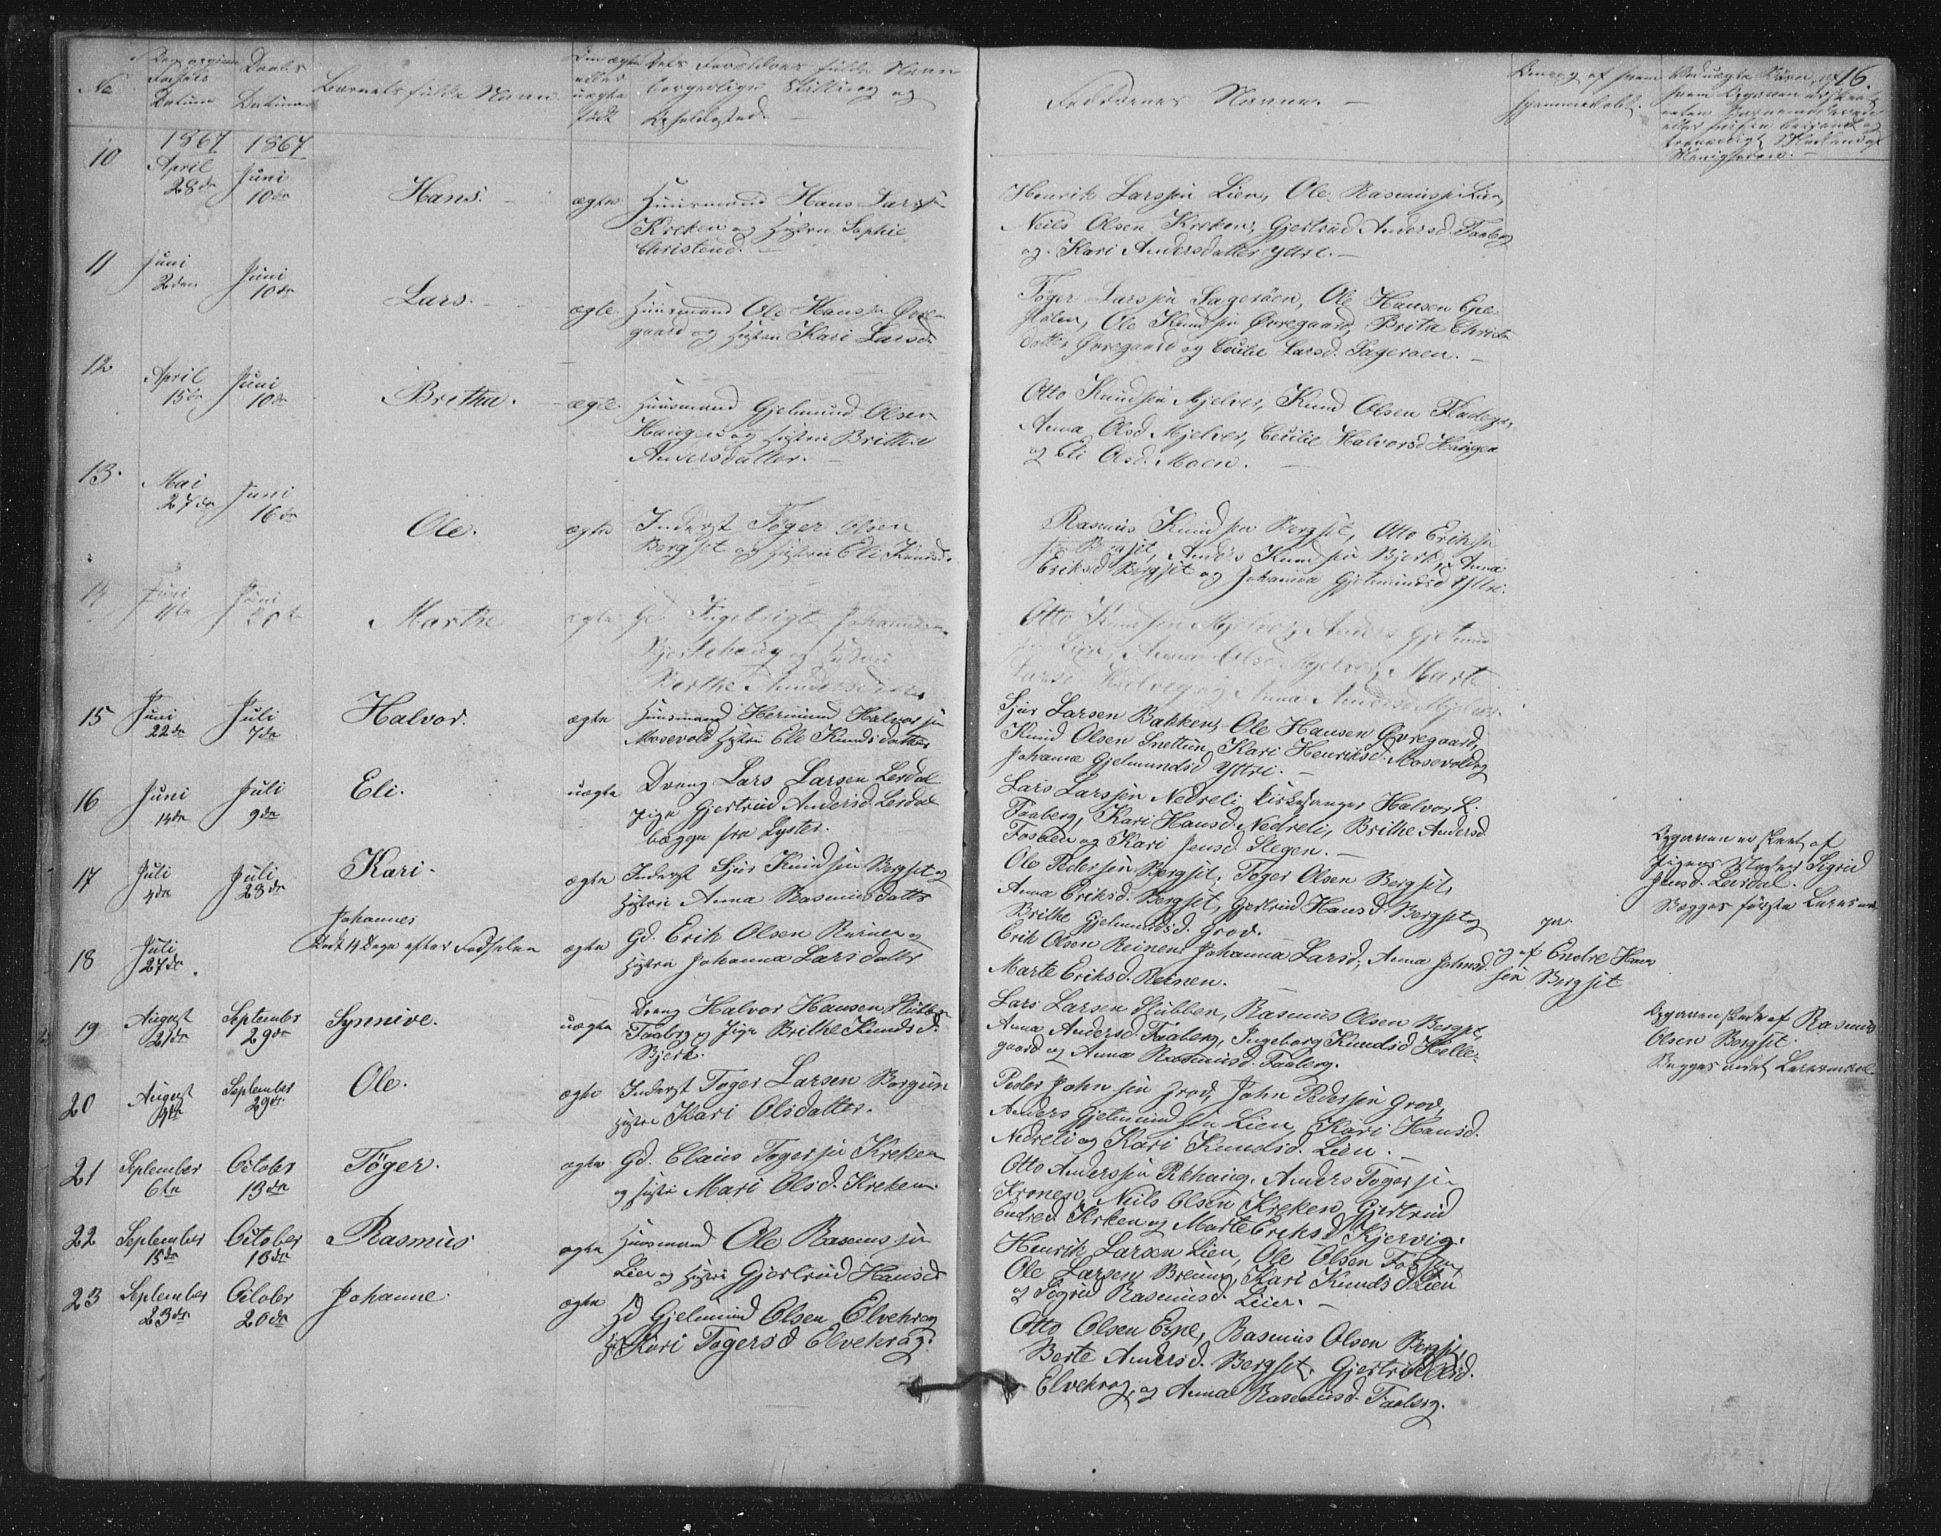 16.
No
Datum
Daabs
Datum
Barnets fulde Navn
Faddernes Navne. —
10
1867
April
28de
1867
Juni
10de
Hans.
ægte
Huusmand Hans Lars
Kreken og Hustru Sophie
Henrik Larssen Lien, Ole Rasmuss. Lien,
Neils Olsen Kreken, Gjertrud Andersd. Faaberg
og Kari Andersdatter Yttri. —
11
Juni
2den
Juni
10de
Lars.
ægte.
Huusmand Ole Hanssen Øvre-
gaard og Hustru Kari Larsd.
Tøger Larssen Sagerøen, Ole Hansen Epe-
Ole Knudsen Øvregaard, Brita Christen
datter Øvregaard og Cecilie Larsd. Sagerøen. —
12
April
15de
Juni
10de
Brithe.
ægte.
Huusmand Gjelmund Olsen
Haugen og Hustru Brithe
Andersdatter. —
Otto Knudsen Mjelver, Knud Olsen
Anna Olsd. Mjelver, Cecilie Halvorsd. Haugen
og Eli Olsd. Moen. —
13.
Mai
27de
Juni
16de
Ole.
ægte
Inderst Tøger Olsen
Bergset og Hustru Eli Knudsd.
Rasmus Knudsen Bergset, Otto Eriks
sen Bergset, Anders Knudsen Bjerk, Anna
Eriksd. Bergset og Johanna Gjelmundsd. Yttri.
14
Juni
Juni
Marthe
ægte
Gd. Ingebrigt Johannessen
Bjerkehaug og Hustru
Berthe Andersdatter
Otto Knudsen Mjelver, Anders Gjelmund
sen Lien, Anna Olsd. Mjelver, Marte
Larsd. og Anna Andersd. Mjelver.
15
Juni
22de
Juli
7de
Halvor.
ægte
Huusmand Hermund Halvorsen
Mosevold Hustru Eli Knudsdatter
Sjur Larsen Bakken, Ole Hansen Øvregaard,
Knud Olsen Snettun, Kari Henriksd. Mosevold og
Johanne Gjelmundsd. Yttri. —
16
Juni
14de
Juli
9de
Eli.
uægte
Dreng Lars Larsen Lerdal
Pige Gjertrud Andersd. Lerdal
begge fra Lyster.
Lars Larssen Nedreli, Kirkesanger Halvor L.
Faaberg, Kari Hansd. Nedreli, Brithe Andersd.
Fosøen og Kari Jensd. Stegen. —
Opgaven er skeet af
Pigens Moder Sigrid
Jensd. Lerdal.
Begges første Leiermaal
17
Juli
4de
Juli
28de
Kari.
ægte
Inderst Sjur Knudsen Bergset og
Hustru Anna Rasmusdatter
Ole Pedersen Bergset, Tøger Olsen Bergset,
Anna Eriksd. Bergset, Gjertrud Hansd. Bergset og
Brithe Gjelmundsd. Grov.
ja.
18
Juli
27de
Johannes
Død 14 Dage efter Fødselen
ægte
Gd. Erik Olsen Reinen og
Hustru Johanna Larsdatter
Erik Olsen Reinen, Johanna Larsd., Anna Johnsd. og
Marte Eriksd. Reinen.
af Endre Hans
sen Bergset
19
August
21de
September
29de
Synnive.
uægte
Dreng Halvor Hansen Stubben
Faaberg og Pige Brithe Knudsd.
Bjerk.
Lars Larsen Stubben, Rasmus Olsen Bergset,
Anna Andersd. Faaberg, Ingeborg Knudsd. Helle-
gaard og Anna Rasmusd. Faaberg.
Opgaven skede af Rasmus
Olsen Bergset.
Begges andet Leiermaal.
20
August
4de
September
29de
Ole.
ægte
Inderst Tøger Larsen Borgun
Hustru Kari Olsdatter.
Peder Johnsen Grov, John Pedersen Grov,
Anders Gjelmundsen Lien, Kari Hansd.
Nedreli og Kari Knudsd. Lien. —
21
September
6te
October
13de
Tøger.
ægte
Gd. Claus Tøgersen Kreken
og Hustru Mari Olsd. Kreken.
Otto Anderssen Ekhaug, Anders Tøgersen
Kronen, Neils Olsen Kreken, Gjertrud
Endred. Kreken og Marte Eriksd. Kjervig.
22
September
15de
October
13de
Rasmus
ægte
Huusmand Ole Rasmussen
Lien og Hustru Gjertrud Hansd.
Henrik Larsen Lien, Ole Olsen Fosøen,
Ole Larsen Breum, Kari Knudsd. Lien
og Sigrid Rasmusd. Lien. —
23
September
23de
October
20de
Johanne.
ægte
Gd Gjelmund Olsen Elvekrog
H. Kari Tøgersd Elvekrog.
Otto Olsen Epe, Rasmus Olsen Bergset,
Berte Andersd. Bergset, Gjertrud Olsd.
Elvekrog, og Anna Rasmusd. Faaberg.